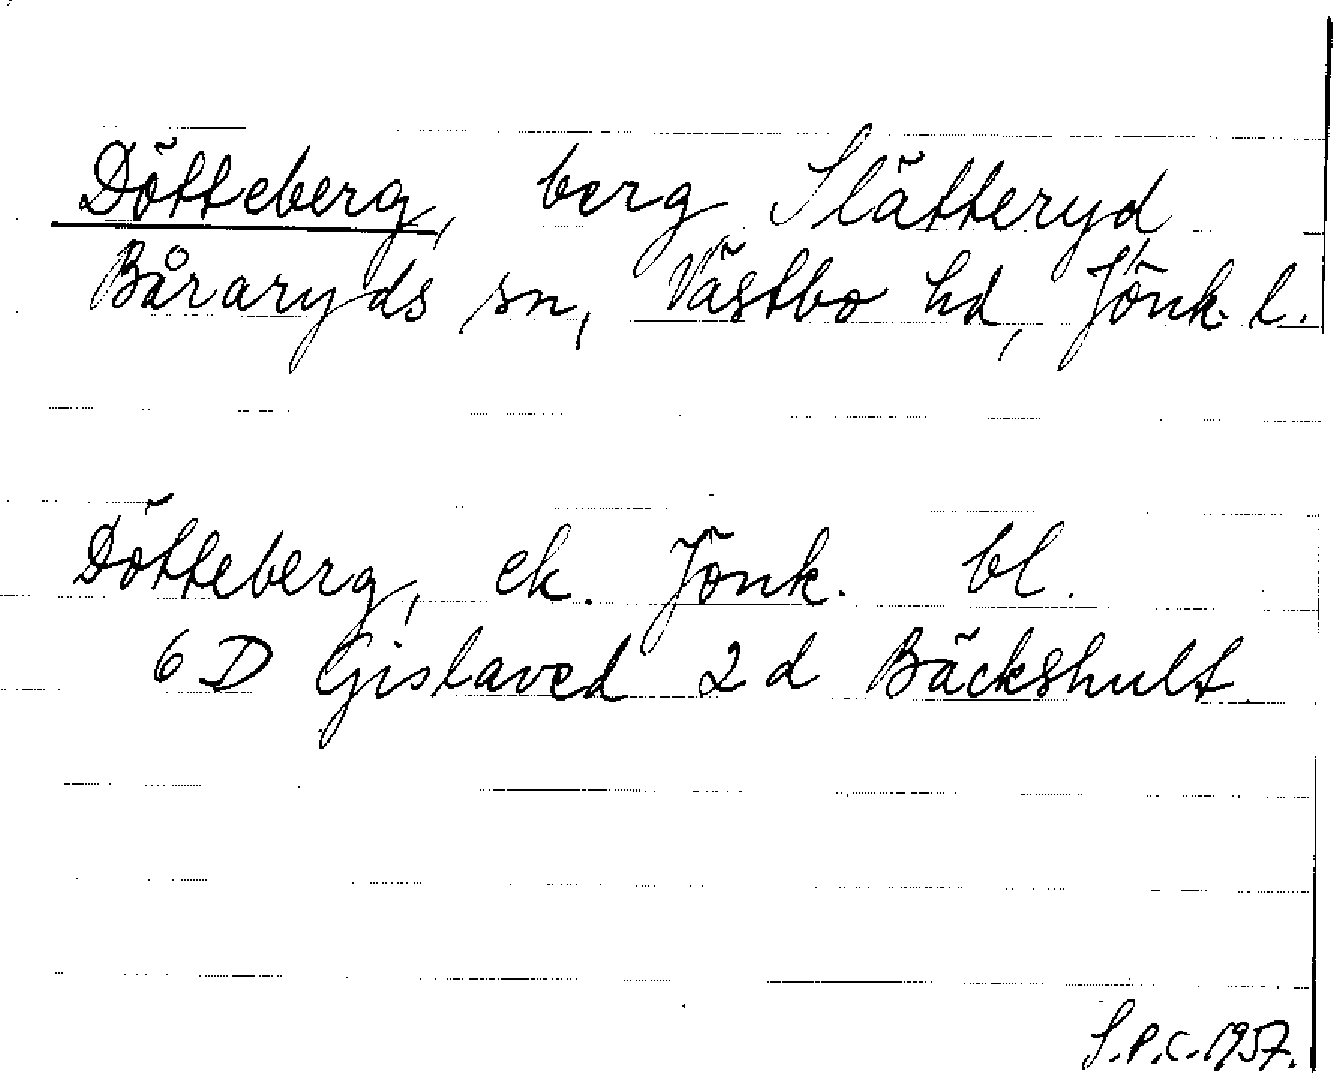 Dötteberg, berg Slätteryd
Båraryds sn, Västbo hd, Jönk. l.
Dötteberg, ek. Jönk. bl.
6 D Gislaved 2 d Bäckshult.
S.P.C. 1957.